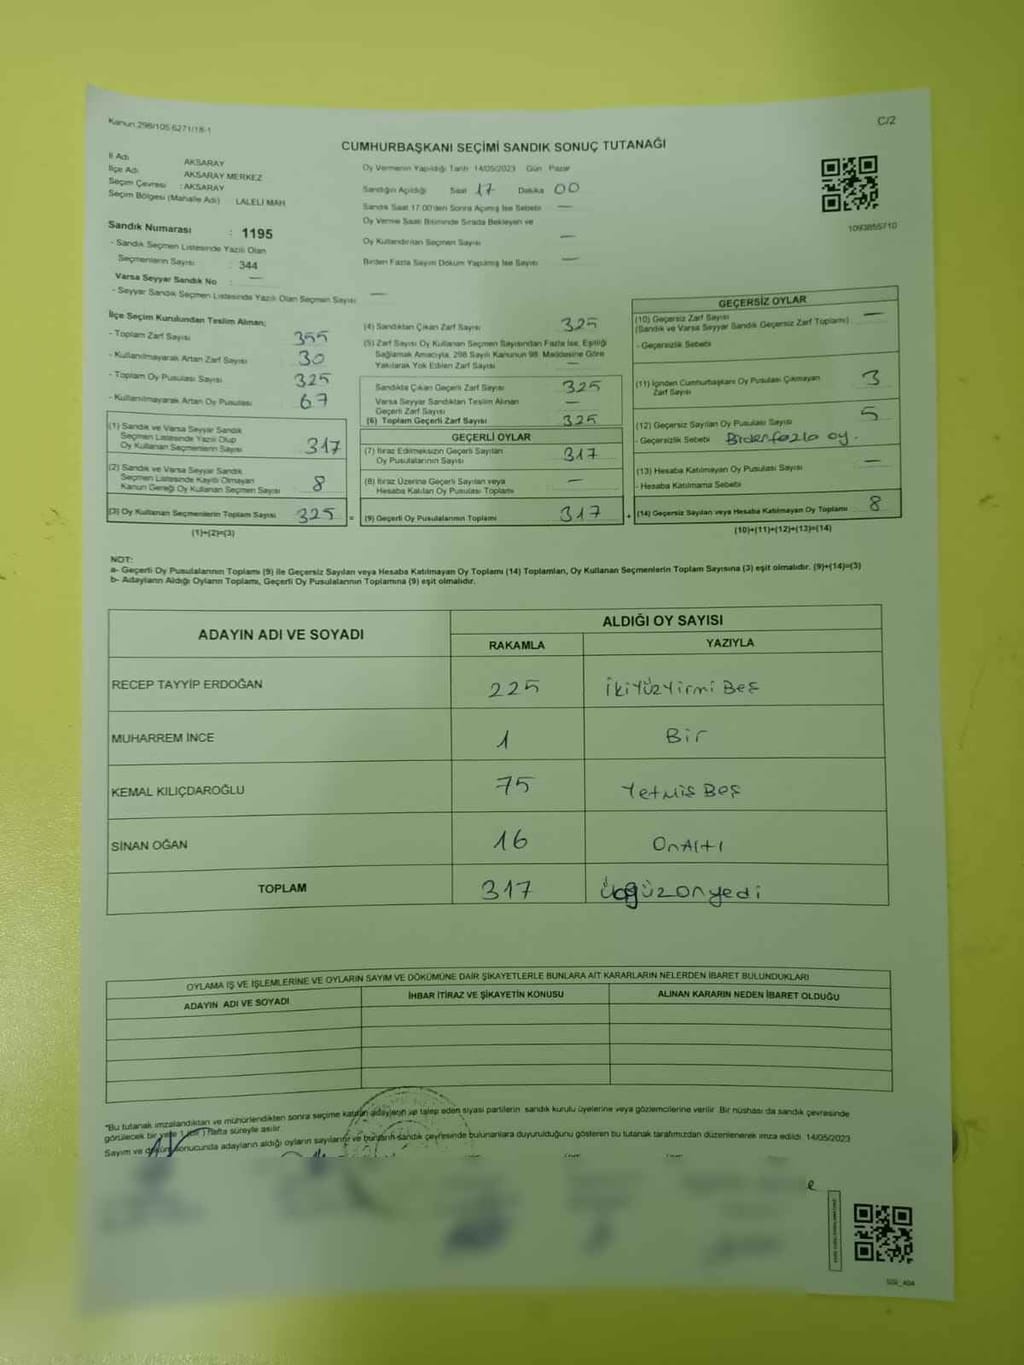 Kanun 298/105 6271/18-1
C/2
CUMHURBAŞKANI SEÇİMİ SANDIK SONUÇ TUTANAĞI
İl Adı AKSARAY
İlçe Adı AKSARAY MERKEZ
Seçim Çevresi : AKSARAY
Seçim Bölgesi (Mahalle Adı) LALELİ MAH
Oy Vermenin Yapıldığı Tarih 14/05/2023 Gün Pazar
Sandığın Açıldığı Saat 17 Dakika 00
Sandık Saat 17.00'den Sonra Açılmış İse Sebebi —
Oy Verme Saati Bitiminde Sırada Bekleyen ve
Oy Kullandırılan Seçmen Sayısı —
Birden Fazla Sayım Döküm Yapılmış İse Sayısı —
1093855710
Sandık Numarası : 1195
- Sandık Seçmen Listesinde Yazılı Olan
Seçmenlerin Sayısı : 344
Varsa Seyyar Sandık No : —
- Seyyar Sandık Seçmen Listesinde Yazılı Olan Seçmen Sayısı —
İlçe Seçim Kurulundan Teslim Alınan:
- Toplam Zarf Sayısı 355
- Kullanılmayarak Artan Zarf Sayısı 30
- Toplam Oy Pusulası Sayısı 325
- Kullanılmayarak Artan Oy Pusulası 67
(1) Sandık ve Varsa Seyyar Sandık
Seçmen Listesinde Yazılı Olup
Oy Kullanan Seçmenlerin Sayısı 317
(2) Sandık ve Varsa Seyyar Sandık
Seçmen Listesinde Kayıtlı Olmayan
Kanun Gereği Oy Kullanan Seçmen Sayısı 8
(3) Oy Kullanan Seçmenlerin Toplam Sayısı 325 =
(1)+(2)=(3)
(4) Sandıktan Çıkan Zarf Sayısı 325
(5) Zarf Sayısı Oy Kullanan Seçmen Sayısından Fazla İse, Eşitliği
Sağlamak Amacıyla, 298 Sayılı Kanunun 98. Maddesine Göre
Yakılarak Yok Edilen Zarf Sayısı —
Sandıkta Çıkan Geçerli Zarf Sayısı 325
Varsa Seyyar Sandıktan Teslim Alınan
Geçerli Zarf Sayısı —
(6) Toplam Geçerli Zarf Sayısı 325
GEÇERLİ OYLAR
(7) İtiraz Edilmeksizin Geçerli Sayılan
Oy Pusulalarının Sayısı 317
(8) İtiraz Üzerine Geçerli Sayılan veya
Hesaba Katılan Oy Pusulası Toplamı —
(9) Geçerli Oy Pusulalarının Toplamı 317 +
GEÇERSİZ OYLAR
(10) Geçersiz Zarf Sayısı —
(Sandık ve Varsa Seyyar Sandık Geçersiz Zarf Toplamı)
- Geçersizlik Sebebi
(11) İçinden Cumhurbaşkanı Oy Pusulası Çıkmayan
Zarf Sayısı 3
(12) Geçersiz Sayılan Oy Pusulası Sayısı 5
- Geçersizlik Sebebi Birden fazla oy.
(13) Hesaba Katılmayan Oy Pusulası Sayısı —
- Hesaba Katılmama Sebebi
(14) Geçersiz Sayılan veya Hesaba Katılmayan Oy Toplamı 8
(10)+(11)+(12)+(13)=(14)
NOT:
a- Geçerli Oy Pusulalarının Toplamı (9) ile Geçersiz Sayılan veya Hesaba Katılmayan Oy Toplamı (14) Toplamları, Oy Kullanan Seçmenlerin Toplam Sayısına (3) eşit olmalıdır. (9)+(14)=(3)
b- Adayların Aldığı Oyların Toplamı, Geçerli Oy Pusulalarının Toplamına (9) eşit olmalıdır.
ADAYIN ADI VE SOYADI
ALDIĞI OY SAYISI
RAKAMLA YAZIYLA
RECEP TAYYİP ERDOĞAN 225 İkiYüzYirmi Beş
MUHARREM İNCE 1 Bir
KEMAL KILIÇDAROĞLU 75 Yetmiş Beş
SİNAN OĞAN 16 OnAltı
TOPLAM 317 üçyüzonyedi
OYLAMA İŞ VE İŞLEMLERİNE VE OYLARIN SAYIM VE DÖKÜMÜNE DAİR ŞİKAYETLERLE BUNLARA AİT KARARLARIN NELERDEN İBARET BULUNDUKLARI
ADAYIN ADI VE SOYADI İHBAR İTİRAZ VE ŞİKAYETİN KONUSU ALINAN KARARIN NEDEN İBARET OLDUĞU
"Bu tutanak imzalandıktan ve mühürlendikten sonra seçime katılan adayların ve talep eden siyasi partilerin sandık kurulu üyelerine veya gözlemcilerine verilir. Bir nüshası da sandık çevresinde
görülecek bir yere 1 (Bir) hafta süreyle asılır.
Sayım ve döküm sonucunda adayların aldığı oyların sayılarını ve bunların sandık çevresinde bulunanlara duyurulduğunu gösteren bu tutanak tarafımızdan düzenlenerek imza edildi. 14/05/2023